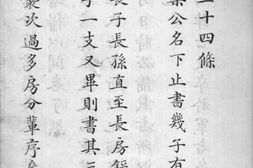 十四條
公名下止書幾子有
長子長孫直至長房
一支又畢則書其三
次過多房分輩序